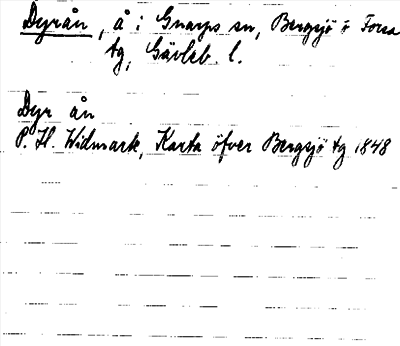 Dyrån, å i Gnarps sn, Bergsjö o Forsa
tg, Gävleb. l.
Dyr ån
P. H. Widmark, Karta öfver Bergsjö tg 1848